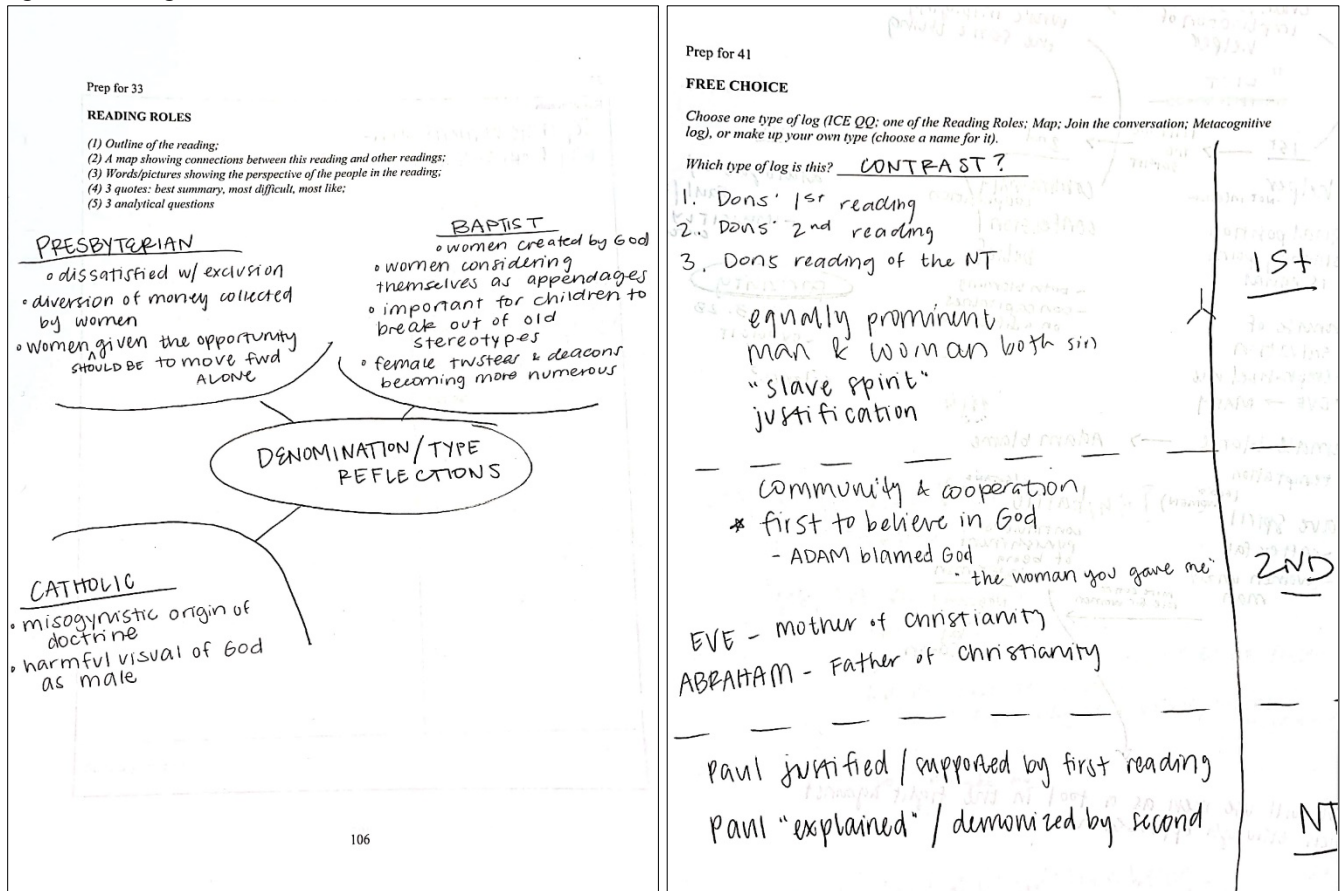 Prep for 33
READING ROLES
(1) Outline of the reading;
(2) A map showing connections between this reading and other readings;
(3) Words/pictures showing the perspective of the people in the reading;
(4) 3 quotes: best summary, most difficult, most like;
(5) 3 analytical questions
PRESBYTERIAN
• dissatisfied w/ exclusion
• diversion of money collected
by women
• women SHOULD BE given the opportunity
to move fwd
ALONE
BAPTIST
• women created by God
• women considering
themselves as appendages
• important for children to
break out of old
stereotypes
• female trustees & deacons
becoming more numerous
DENOMINATION/TYPE
REFLECTIONS
CATHOLIC
• misogynistic origin of
doctrine
• harmful visual of God
as male
106
Prep for 41
FREE CHOICE
Choose one type of log (ICE QQ; one of the Reading Roles; Map; Join the conversation; Metacognitive
log), or make up your own type (choose a name for it).
Which type of log is this? CONTRAST?
1. Dons' 1st reading
2. Dons' 2nd reading
3. Dons reading of the NT
1St
equally prominent
man & woman both sin
"slave spirit"
justification
community & cooperation
* first to believe in God
- ADAM blamed God
"the woman you gave me"
2ND
EVE - mother of Christianity
ABRAHAM - Father of Christianity
Paul justified / supported by first reading
Paul "explained" / demonized by second
NT